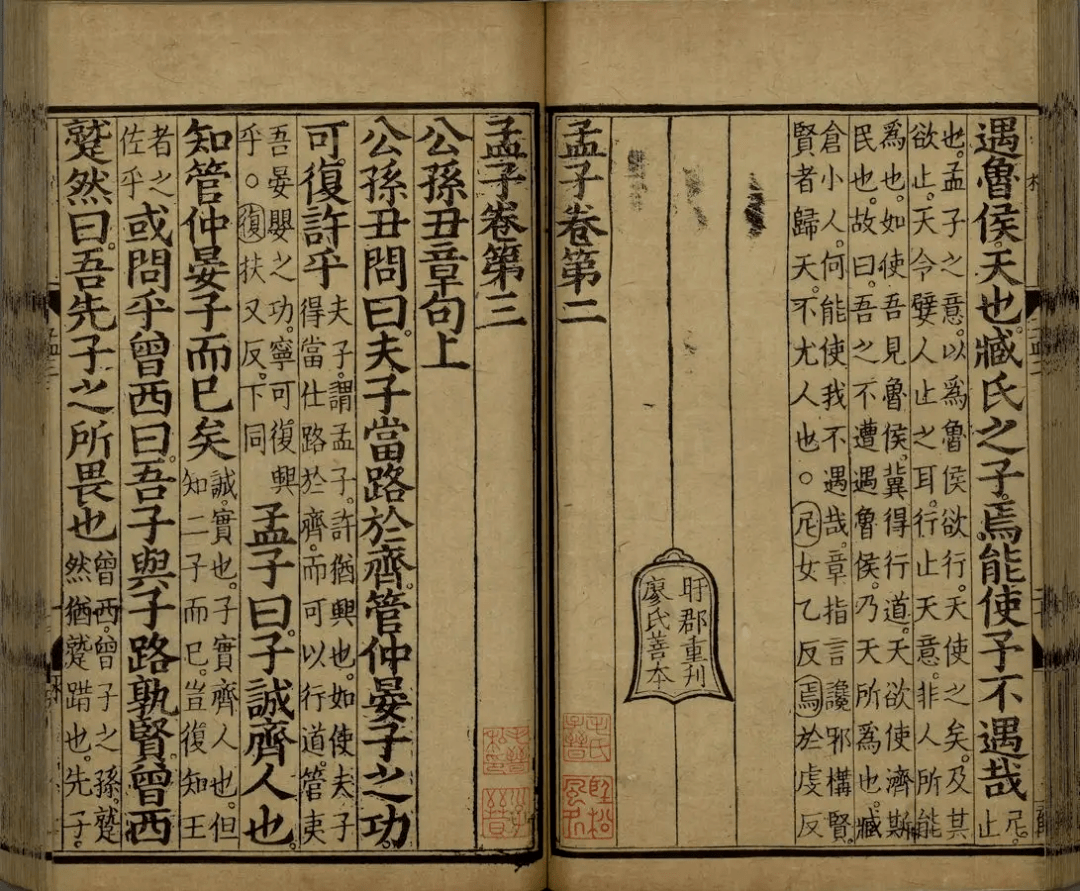 遇魯侯。天也。臧氏之子。焉能使予不遇哉尼。止
也。孟子之意。以爲魯侯欲行。天使之矣。及其
欲止。天令嬖人止之耳。行止天意。非人所能
爲也。如使吾見魯侯。冀得行道。天欲使濟斯
民也。故曰。吾之不遭遇魯侯。乃天所爲也。臧
倉小人。何能使我不遇哉。章指言讒邪構賢。
賢者歸天。不尤人也。○尼女乙反焉於虔反
旴郡重刊
廖氏善本
孟子卷第二
孟子卷第三
公孫丑章句上
公孫丑問曰。夫子當路於齊。管仲晏子之功。
可復許乎夫子。謂孟子。許猶興也。如使夫子得當仕路於齊。而可以行道。管夷
吾晏嬰之功。寧可復興乎。○復扶又反。下同孟子曰。子誠齊人也。
知管仲晏子而已矣誠。實也。子實齊人也。但知二子而已。豈復知王
者之佐乎或問乎曾西曰。吾子與子路孰賢。曾西
蹵然曰。吾先子之所畏也曾西。曾子之孫。蹵然猶蹵踖也。先子。